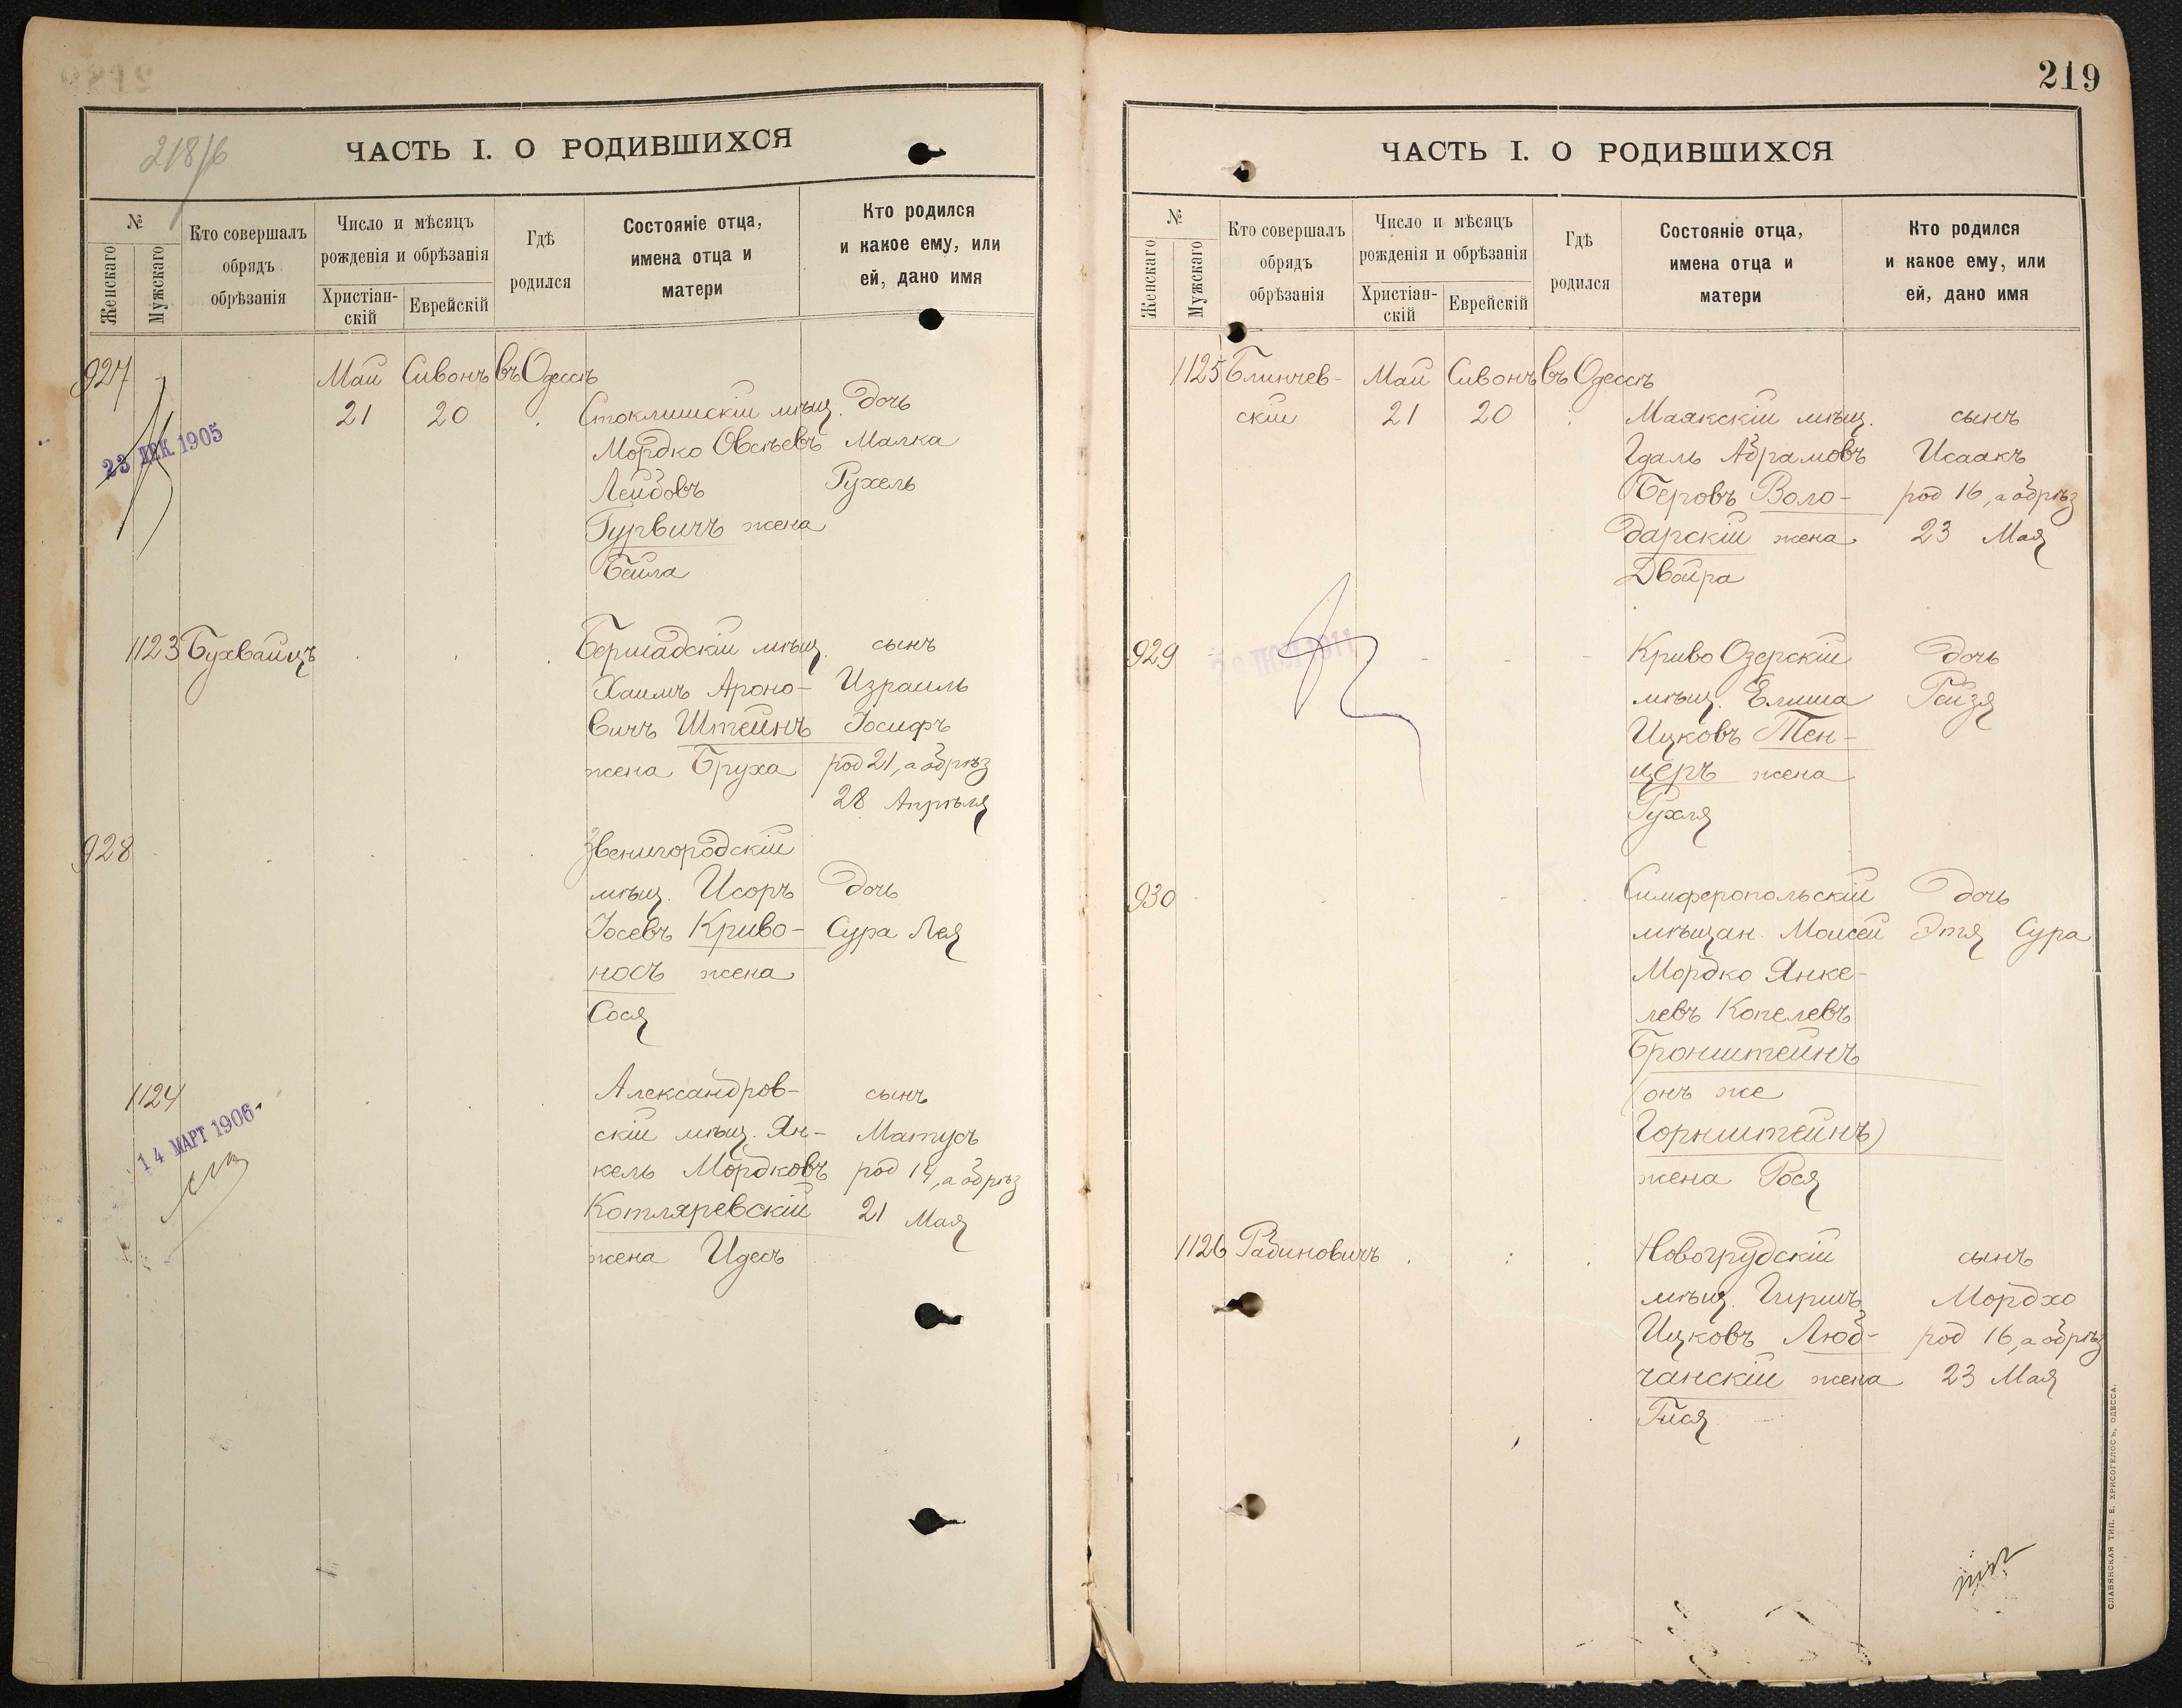 218/б
ЧАСТЬ I. О РОДИВШИХСЯ
№
Женскаго
Мужскаго
Кто совершалъ
обрядъ
обрѣзанія
Число и мѣсяцъ
рожденія и обрѣзанія
Христіан-
скій
Еврейскій
Гдѣ
родился
Состояніе отца,
имена отца и
матери
Кто родился
и какое ему, или
ей, дано имя
927
Май Сивонъ въ Одессѣ
21 20 Стоклишскій мѣщ. дочь
Мордко Овсѣевъ Малка
Лейбовъ Рухель
Гурвичъ жена
Бейла
23 ДЕК 1905
1123 Бухвайцъ Бершадскій мѣщ. сынъ
Хаимъ Ароно- Израиль
вичъ Штейнъ Іосифъ
жена Бруха род 21, а обрѣз
28 Апрѣля
928 Звенигородскій
мѣщ. Исоръ дочь
Іосевъ Криво- Сура Лея
носъ жена
Сося
1124 Александров- сынъ
скій мѣщ. Ян- Матусъ
кель Мордковъ род 14, а обрѣз
Котляревскій 21 Мая
жена Идесъ
14 МАРТ 1906
219
ЧАСТЬ I. О РОДИВШИХСЯ
№
Женскаго
Мужскаго
Кто совершалъ
обрядъ
обрѣзанія
Число и мѣсяцъ
рожденія и обрѣзанія
Христіан-
скій
Еврейскій
Гдѣ
родился
Состояніе отца,
имена отца и
матери
Кто родился
и какое ему, или
ей, дано имя
1125 Блинчев- Май Сивонъ въ Одессѣ
скій 21 20 Маякскій мѣщ. сынъ
Гдаль Абрамовъ Исаакъ
Беровъ Воло- род 16, а обрѣз
дарскій жена 23 Мая
Двойра
929 Криво Озерскій дочь
мѣщ. Елиша Рейзя
Ицковъ Тен-
церъ жена
Рухля
930 Симферопольскій дочь
мѣщан. Моисей Этя Сура
Мордко Янке-
левъ Копелевъ
Бронштейнъ
(онъ же
Горнштейнъ)
жена Рося
1126 Рабиновичъ Новогрудскій сынъ
мѣщ. Гиршъ Мордхо
Ицковъ Люб- род 16, а обрѣз
чанскій жена 23 Мая
Гися
СЛАВЯНСКАЯ ТИП. Е. ХРИСОГЕЛОСЪ, ОДЕССА.